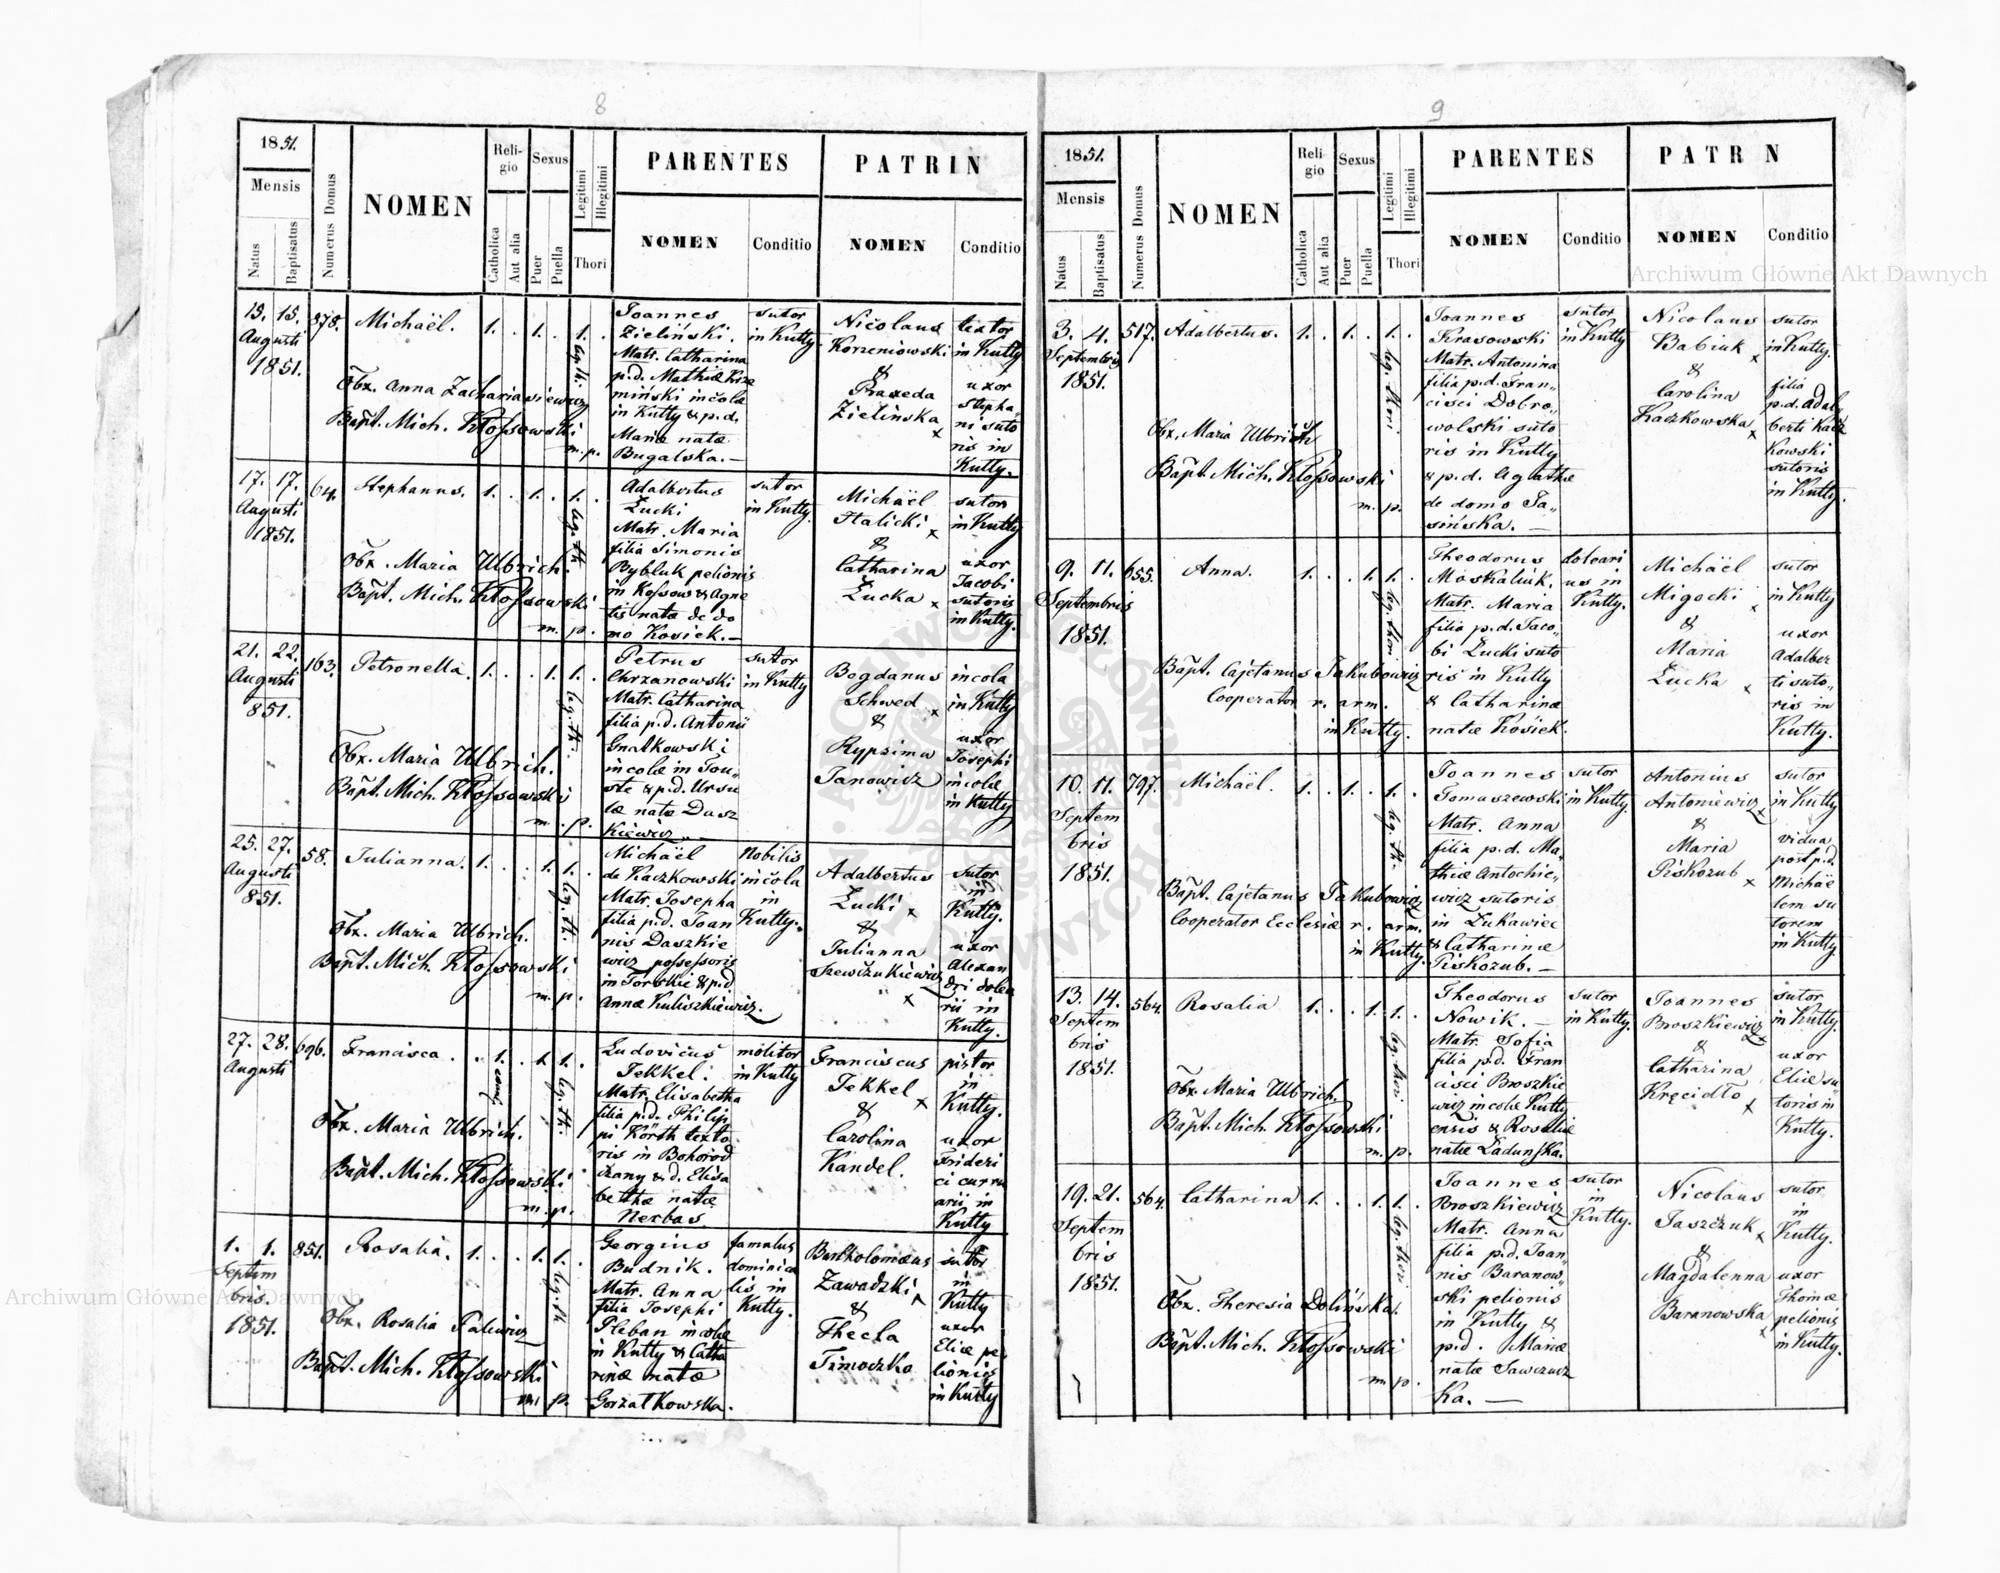 8
1851.
Mensis
Natus
Baptisatus
Numerus Domus
NOMEN
Religio
Catholica
Aut alia
Sexus
Puer
Puella
Legitimi
Illegitimi
Thori
PARENTES
NOMEN
Conditio
PATRIN
NOMEN
Conditio
15. 15.
Augusti
1851.
878.
Michaël.
1. . 1. . 1. .
leg. th.
Obx. Anna Zachariasiewicz
Bapt. Mich. Kłossowski
m. p.
Joannes
Zieliński.
Matr. Catharina
p.d. Mathiæ Krze
miński incolæ
in Kutty & p.d.
Mariæ natæ
Bugalska. —
sutor
in Kutty.
Nicolaus
Korzeniowski
&
Praxeda
Zielińska x
in Kutty
uxor
Stepha„
ni suto
ris in
Kutty.
17. 17.
Augusti
1851.
64.
Stephanus.
1. . 1. . 1. .
leg. th.
Obx. Maria Ulbrich.
Bapt. Mich. Kłossowski
m. p.
Adalbertus
Łucki
Matr. Maria
filia Simonis
Bybluk pelionis
in Kossow & Agne
tis natæ de do
mo Kosiek. —
sutor
in Kutty.
Michaël
Halicki x
&
Catharina
Łucka x
sutor
in Kutty
uxor
Jacobi
sutoris
in Kutty.
21. 22.
Augusti
851.
163.
Petronella.
1. . . 1. 1. .
leg. th.
Obx. Maria Ulbrich.
Bapt. Mich. Kłossowski
m. p.
Petrus
Chrzanowski
Matr. Catharina
filia p.d. Antonii
Gnatkowski
incolæ in Tou„
ste & p.d. Ursu
læ natæ Dasz
kiewicz. —
sutor
in Kutty
Bogdanus
Schwed x
&
Rypsima
Janowicz
incola
in Kutty
uxor
Josephi
incolæ
in Kutty
25. 27.
Augusti
851.
58.
Julianna.
1. . . 1. 1. .
leg. th.
Obx. Maria Ulbrich.
Bapt. Mich. Kłossowski
m. p.
Michaël
de Kaczkowski
Matr. Josepha
filia p.d. Joan
nis Daszkie
wicz possessoris
in Torskie & p.d.
Annæ Kuliszkiewicz.
Nobilis
incola
in
Kutty.
Adalbertus
Łucki x
&
Julianna
Szewczukiewicz
x
sutor
in
Kutty.
uxor
Alexan
dri dolea
rii in
Kutty.
27. 28.
Augusti
696.
Francisca.
. 1. . 1. 1. .
leg. th.
Obx. Maria Ulbrich.
Bapt. Mich. Kłossowski
m. p.
Ludovicus
Jekkel.
Matr. Elisabetha
filia p.d. Philip
pi Körth texto
ris in Bohorod
czany & d. Elisa
bethæ natæ
Nerbas
molitor
in Kutty
Franciscus
Jekkel x
&
Carolina
Kandel.
pistor
in
Kutty.
uxor
Frideri
ci curru
arii in
Kutty
1. 1.
Septem
bris.
1851.
851.
Rosalia.
1. . . 1. 1. .
leg. th.
Obx. Rosalia Palewicz
Bapt. Mich. Kłossowski
m. p.
Georgius
Budnik.
Matr. Anna
filia Josephi
Pleban incolæ
in Kutty & Catha
rinæ natæ
Gorzałkowska.
famulus
dominica
lis in
Kutty.
Bartholomæus
Zawadzki x
&
Thecla
Timoczko
sutor
in
Kutty
uxor
Eliæ pe
lionis
in Kutty
9
1851.
Mensis
Natus
Baptisatus
Numerus Domus
NOMEN
Religio
Catholica
Aut alia
Sexus
Puer
Puella
Legitimi
Illegitimi
Thori
PARENTES
NOMEN
Conditio
PATR N
NOMEN
Conditio
3. 4.
Septembris
1851.
517.
Adalbertus.
1. . 1. . 1. .
leg. thori
Obx. Maria Ulbrich
Bapt. Mich. Kłossowski
m. p.
Joannes
Krasowski
Matr. Antonina
filia p.d. Fran„
cisci Dobro„
wolski suto
ris in Kutty
& p.d. Agathæ
de domo Ja„
sińska. —
sutor
in Kutty
Nicolaus
Babiuk x
&
Carolina
Kaczkowska x
sutor
in Kutty.
filia
p.d. Adal„
berti Kacz
kowski
sutoris
in Kutty.
9. 11.
Septembris
1851.
655.
Anna.
1. . . 1. 1. .
leg. thori
Bapt. Cajetanus Jakubowicz
Cooperator r. arm.
in Kutty.
Theodorus
Moskaliuk.
Matr. Maria
filia p.d. Jaco„
bi Łucki suto
ris in Kutty
& Catharinæ
natæ Kosiek.
doleari
us in
Kutty.
Michaël
Migocki x
&
Maria
Łucka x
sutor
in Kutty
uxor
Adalber
ti suto„
ris in
Kutty.
10. 11.
Septem
bris
1851.
797.
Michaël.
1. . 1. . 1. .
leg. th.
Bapt. Cajetanus Jakubowicz
Cooperator Ecclesiæ r. arm.
in Kutty.
Joannes
Tomaszewski
Matr. Anna
filia p.d. Ma„
thiæ Antochie„
wicz sutoris
in Łukawiec
& Catharinæ
Piskozub. —
sutor
in Kutty.
Antonius
Antoniewicz x
&
Maria
Piskozub x
sutor
in Kutty
vidua
post p.d.
Michae
lem su
torem
in Kutty.
13. 14.
Septem
bris
1851.
564.
Rosalia
1. . . 1. 1. .
leg. thori
Obx. Maria Ulbrich.
Bapt. Mich. Kłossowski
m. p.
Theodorus
Nowik. —
Matr. Sofia
filia p.d. Fran
cisci Broszkie
wicz incolæ Kutty
ensis & Rosaliæ
natæ Ładuńska.
sutor
in Kutty.
Joannes
Broszkiewicz x
&
Catharina
Kręcidło x
sutor
in Kutty.
uxor
Eliæ su„
toris in
Kutty.
19. 21.
Septem
bris
1851.
564.
Catharina
1. . . 1. 1. .
leg. thori
Obx. Theresia Dolińska.
Bapt. Mich. Kłossowski
m. p.
Joannes
Broszkiewicz
Matr. Anna
filia p.d. Joan„
nis Baranow„
ski pelionis
in Kutty &
p.d. Mariæ
natæ Sawczucz
ka. —
sutor
in
Kutty.
Nicolaus
Jaszczuk x
&
Magdalenna
Baranowska
x
sutor
in
Kutty.
uxor
Thomæ
pelionis
in Kutty.
Archiwum Główne Akt Dawnych
Archiwum Główne Akt Dawnych